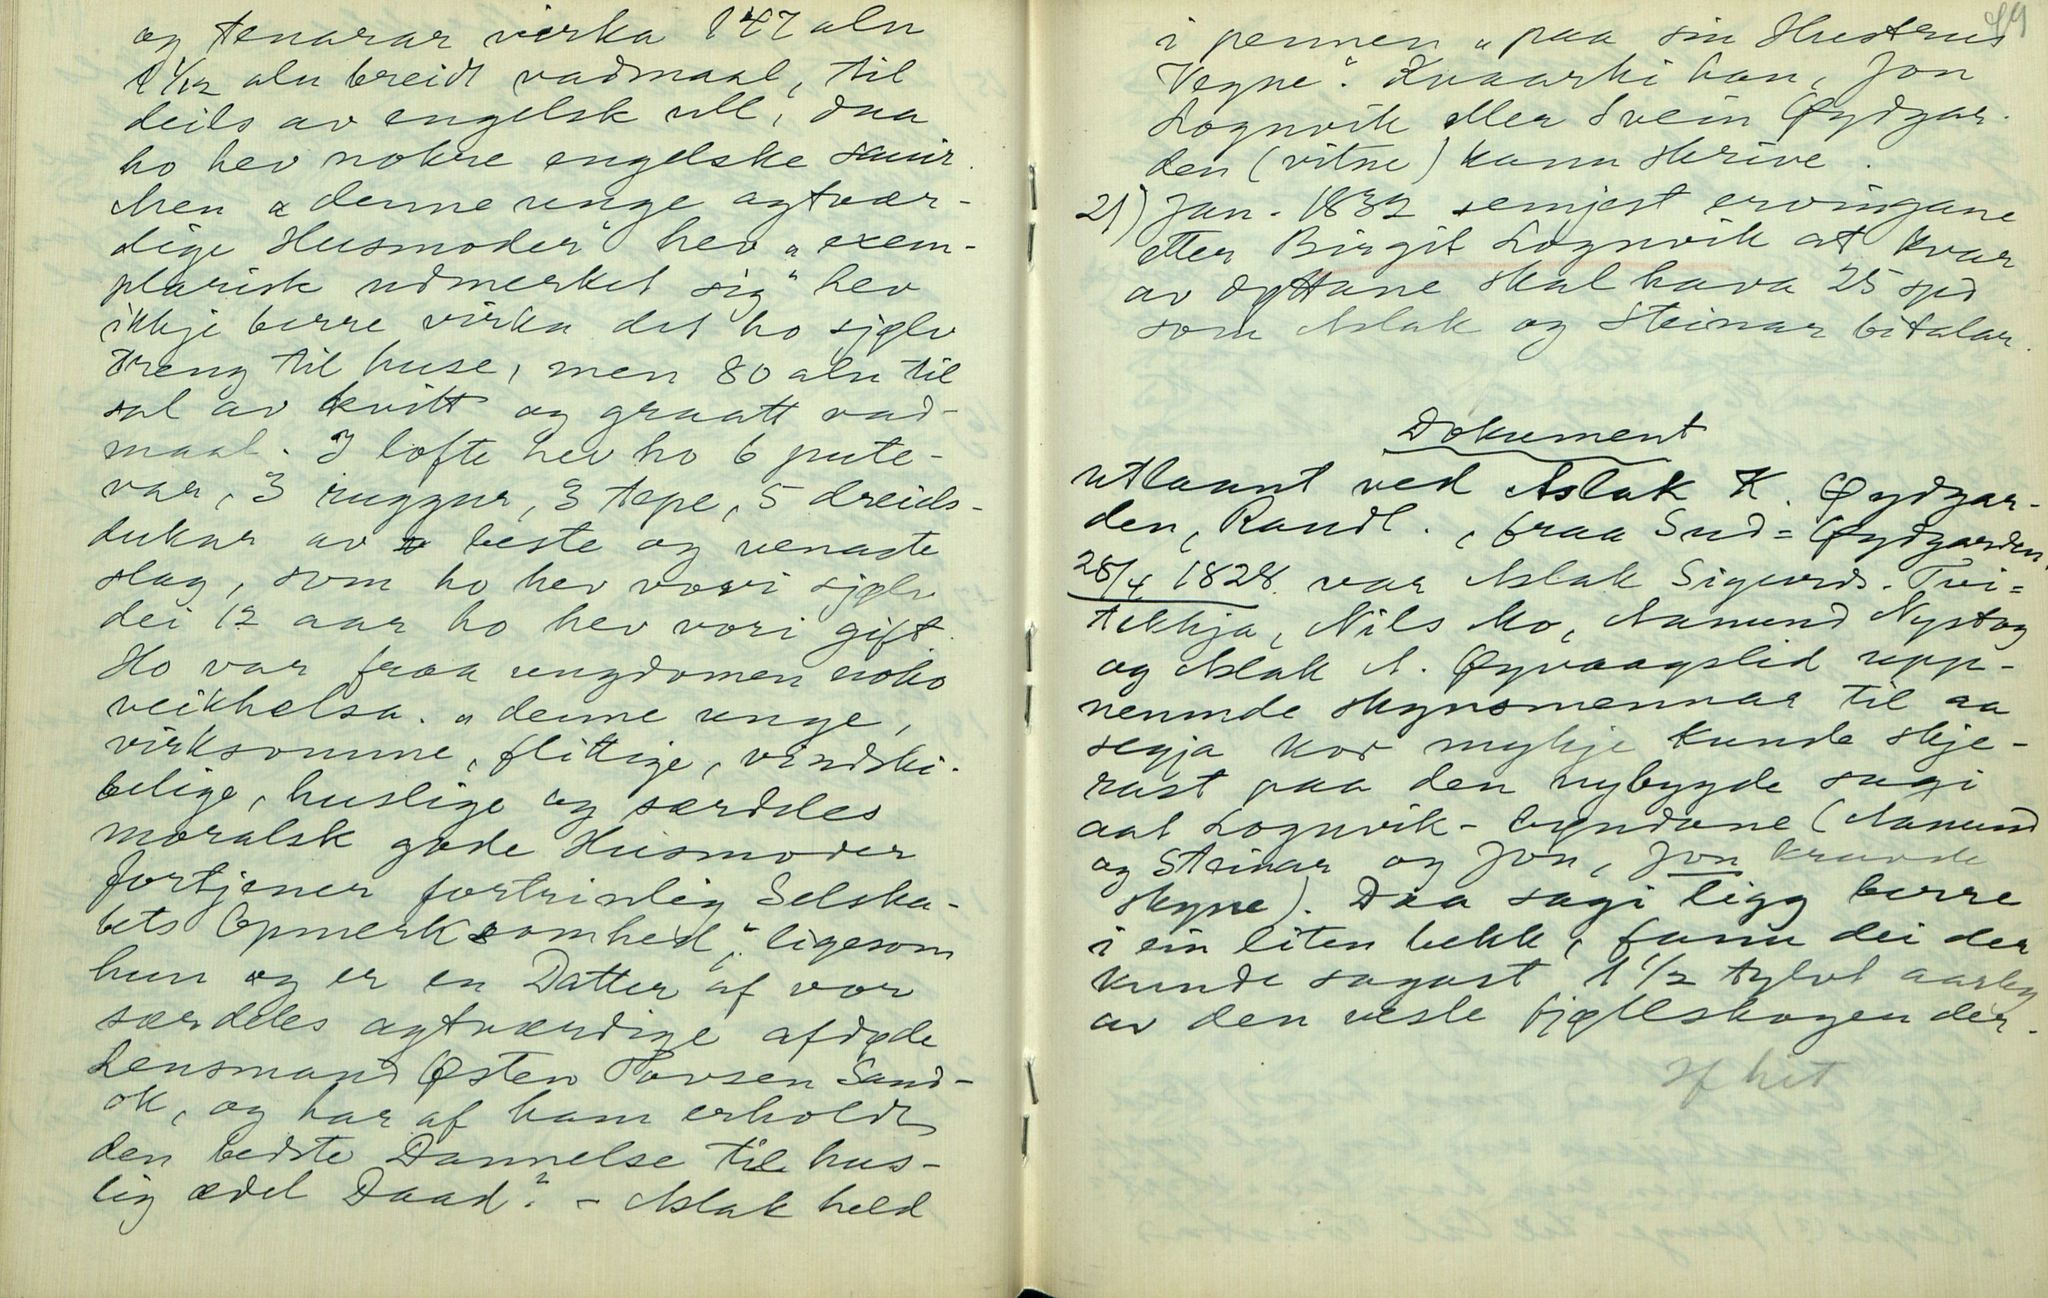 og tenarar virka 147 aln
1 1/12 aln breidt vadmaal, til
deils av engelsk ull, daa
ho hev nokre engelske sauir.
Men „denne unge agtvær-
dige Husmoder“ hev „exem-
plarisk udmerket sig“ hev
ikkje berre virka det ho sjølv
treng til huse, men 80 aln til
sal av kvitt og graatt vad-
maal. I lofte hev ho 6 pute-
var, 3 ruggur, 3 tepe, 5 dreids-
dukar av beste og venaste
slag, som ho hev vovi sjølv
dei 12 aar ho hev vori gift.
Ho var fraa ungdomen noko
veikhelsa. „denne unge,
virksomme, flittige, vindski-
belige, huslige og særdeles
moralsk gode Husmoder
fortjener fortrinlig Selska-
bets Opmerksomhed“, ligesom
hun og er en Datter af vor
særdeles agtværdige afdøde
Lensmand Østen Tovsen Sand-
ok, og har af ham erholdt
den bedste Dannelse til hus-
lig ædel Daad“. – Aslak held
49
i pennen „paa sin Hustrus
Vegne“. Kvaarki han, Jon
Lognvik eller Svein Øydgar-
den (vitne) kann skrive.
21) Jan. 1832 semjest ervingane
etter Birgit Lognvik at kvar
av døttane skal hava 25 spd
som Aslak og Steinar bitalar.
Dokument
utlaant ved Aslak K. Øydgar-
den, Raudl., fraa Sud-Øydgarden.
28/4 1828 var Aslak Sigurds. Tvi-
tekkja, Nils Mo, Aamund Nystog
og Aslak A. Øyvaagslid upp-
nemnde skynsmennar til aa
segja kor mykje kunde skje-
rast paa den nybygde sagi
aat Lognvik-bøndane (Aamund
og Steinar og Jon, Jon kravde
skyne). Daa sagi ligg berre
i ein liten bekk, fann dei der
kunde sagast 1 1/2 tylvt aarleg
av den vesle fjøllskogen der.
Sf hit